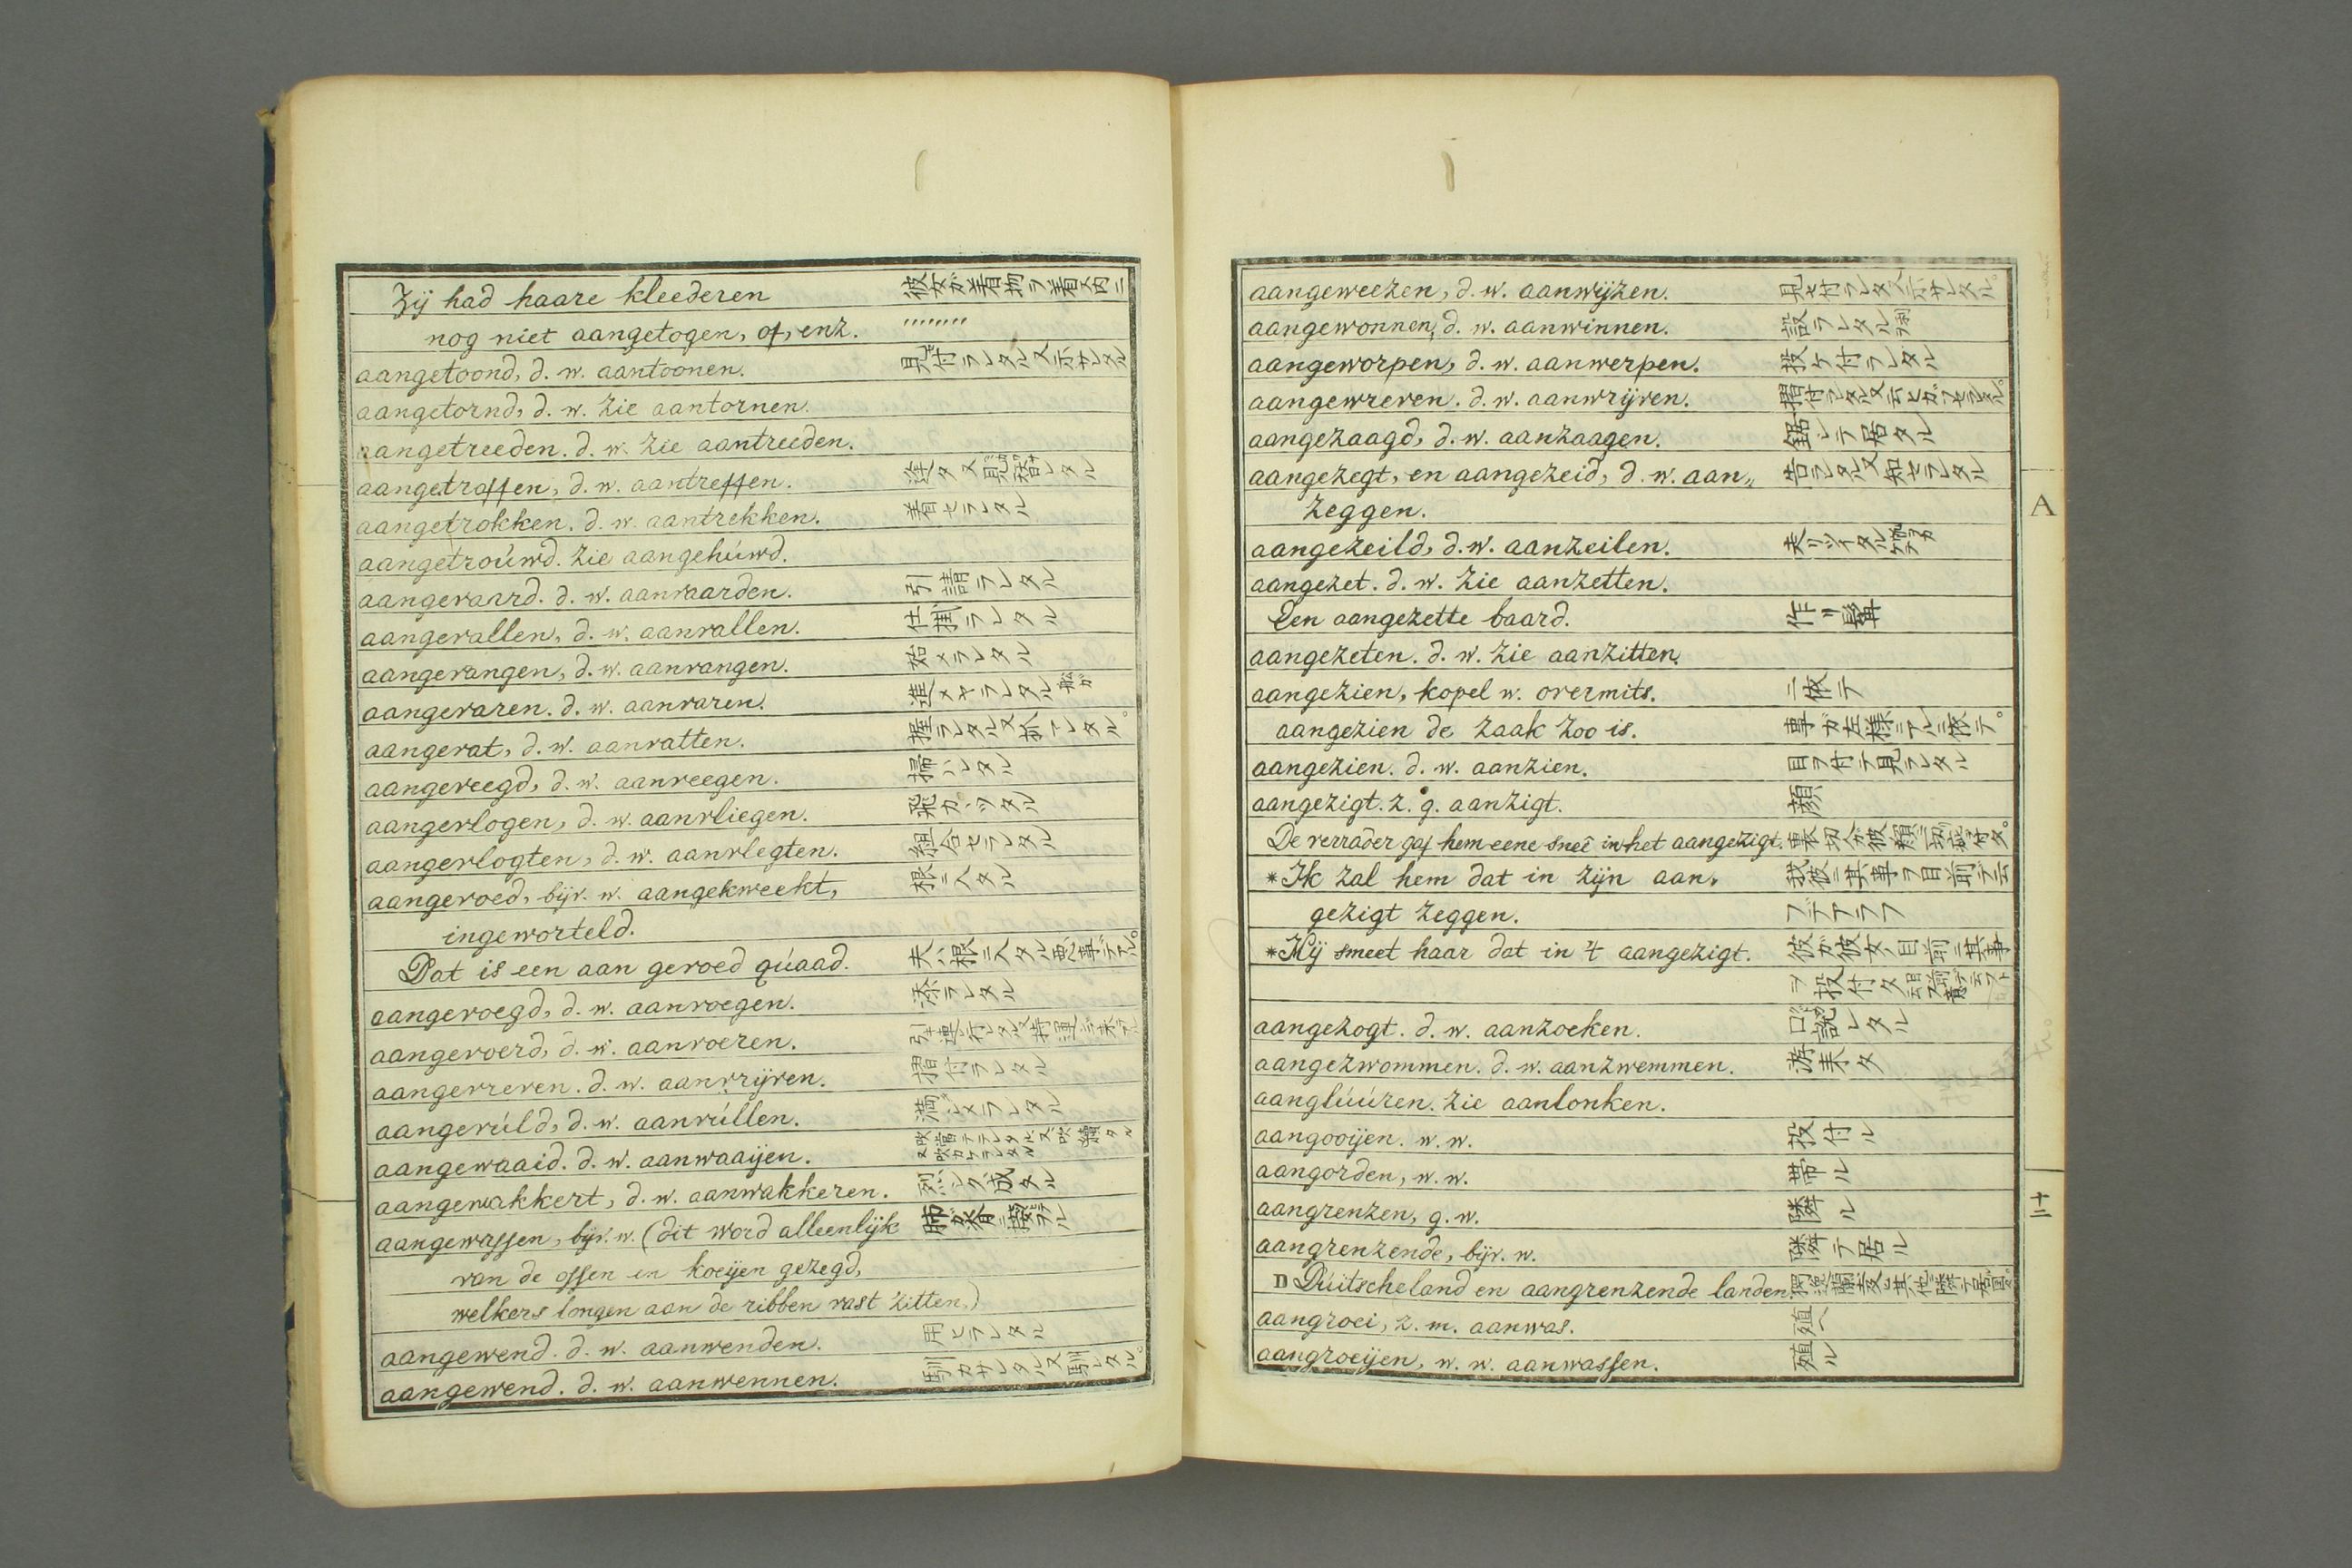 Zij had haare kleederen 彼女ガ着物ヲ着ヌ内ニ
nog niet aangetogen, of, enz. 〃〃〃〃
aangetoond, d. w. aantoonen. 見付ラレタル又示サレタル
aangetornd, d. w. zie aantornen.
aangetreeden. d. w. zie aantreeden.
aangetroffen, d. w. aantreffen.
aangetrokken. d. w. aantrekken. 着セラレタル
aangetroúwd. zie aangehúwd.
aangevaard. d. w. aanvaarden. 引請ラレタル
aangevallen, d. w. aanvallen. 仕掛ラレタル
aangevangen, d. w. aanvangen. 始メラレタル
aangevaren. d. w. aanvaren. 進メヤラレタル 舩ガ
aangevat, d. w. aanvatten. 握ラレタル又
aangeveegd, d. w. aanveegen. 掃ハレタル
aangevlogen, d. w. aanvliegen. 飛カヽツタル
aangevlogten, d. w. aanvlegten. 組合セラレタル
aangevoed, bijv. w. aangekweekt, 根ニ入タル
ingeworteld.
Dat is een aan gevoed qúaad. 夫ハ根ニ入タル悪事デアル。
aangevoegd, d. w. aanvoegen. 添ラレタル
aangevoerd, d. w. aanvoeren.
aangevreven. d. w. aanvrijven. 摺付ラレタル
aangevúld, d. w. aanvúllen. 満シメラレタル
aangewaaid. d. w. aanwaaijen.
aangewakkert, d. w. aanwakkeren. 烈シク成タル
aangewassen, bijv. w. (dit word alleenlijk
van de ossen en koeijen gezegd,
welkers longen aan de ribben vast zitten,)
aangewend. d. w. aanwenden. 用ヒラレタル
aangewend. d. w. aanwennen. 馴カサレタル又馴レタル。
aangeweezen, d. w. aanwijzen. 見セ付ラレタル又示サレタル。
aangewonnen, d. w. aanwinnen. 設ラレタル
aangeworpen, d. w. aanwerpen. 投ケ付ラレタル
aangewreven. d. w. aanwrijven.
aangezaagd, d. w. aanzaagen. 鋸シテ居タル
aangezegt, en aangezeid, d. w. aan„ 告ラレタル又知セラレタル
zeggen.
aangezeild, d. w. aanzeilen.
aangezet. d. w. zie aanzetten.
Een aangezette baard. 作リ髯
aangezeten. d. w. zie aanzitten.
aangezien, kopel w. overmits. ニ依テ
aangezien de zaak zoo is. 事ガ左様ニアルニ依テ。
aangezien. d. w. aanzien. 目ヲ付テ見ラレタル
aangezigt. z. g. aanzigt. 顔
De verrader gaf hem eene sneê in het aangezigt.
*Ik zal hem dat in zijn aan„ 我彼ニ其事ヲ目前デ云
gezigt zeggen. フデアラフ
*Hij smeet haar dat in 't aangezigt. 彼ガ彼女ノ目前ニ其事
ヲ投付タ
aangezogt. d. w. aanzoeken. 口説レタル
aangezwommen. d. w. aanzwemmen. 游来タ
aanglúúren. zie aanlonken.
aangooijen. w. w. 投付ル
aangorden, w. w. 帯ル
aangrenzen, g. w. 隣ル
aangrenzende, bijv. w. 隣テ居ル
D Dúitscheland en aangrenzende landen.
aangroei, z. m. aanwas. 殖ヘ
aangroeijen, w. w. aanwassen. 殖ル
A
十二